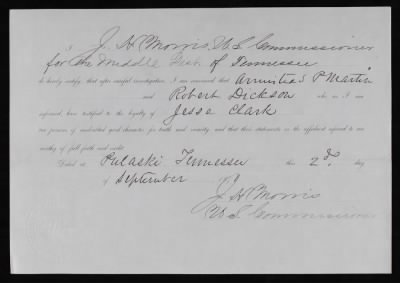 I, J. H. Morris, U S Commissioner
for the Middle Dist of Tennessee
do hereby certify, that after careful investigation, I am convinced that Armistead P Martin
and Robert Dickson who, as I am
informed, have testified to the loyalty of Jesse Clark
are persons of undoubted good character for truth and veracity, and that their statements in the affidavit referred to are
worthy of full faith and credit.
Dated at Pulaski Tennessee this 2d. day
of September 187
J. H. Morris
U S Commissioner